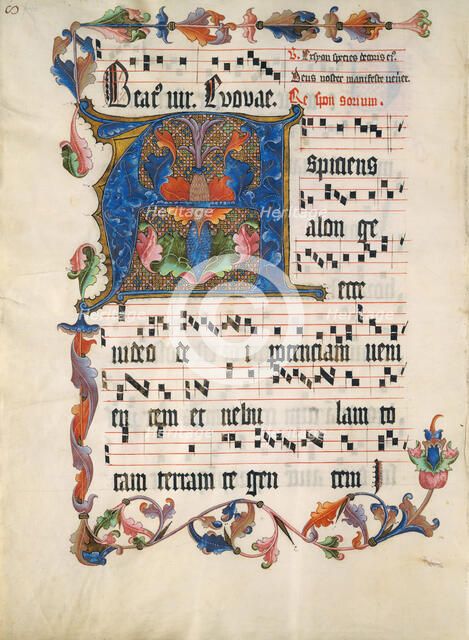 Beat9 uir. Evovae.
V. Ex syon species decoris ei9.
Deus noster manifeste veniet.
Responsorium.
A
spiciens
a lon ge
ecce
uideo de i potenciam ueni
en tem et nebu lam to
tam terram te gen tem
Heritage Heritage
Heritage Heritage